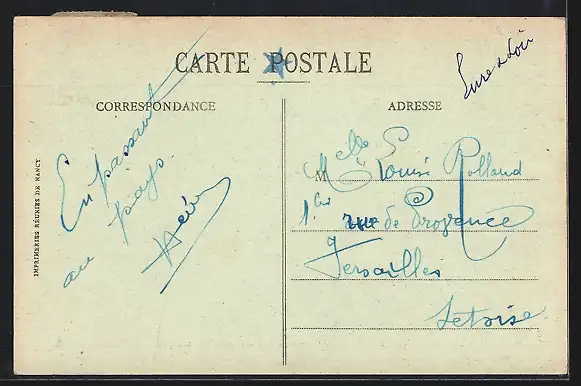 CARTE POSTALE
Eure & Loir
CORRESPONDANCE
ADRESSE
En passant
au pays.
M elle Louise Rolland
1 bis rue de Provence
Versailles
Set oise
IMPRIMERIES RÉUNIES DE NANCY